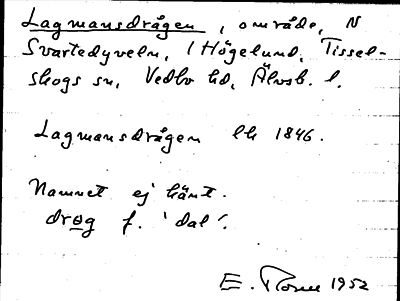 Lagmansdrågen, område, N
Svartedyveln, i Högelund, Tissel-
skogs sn, Vedbo hd, Älvsb. l.
Lagmansdrågen lk 1846.
Namnet ej känt.
drøg f. 'dal'.
E. 1952